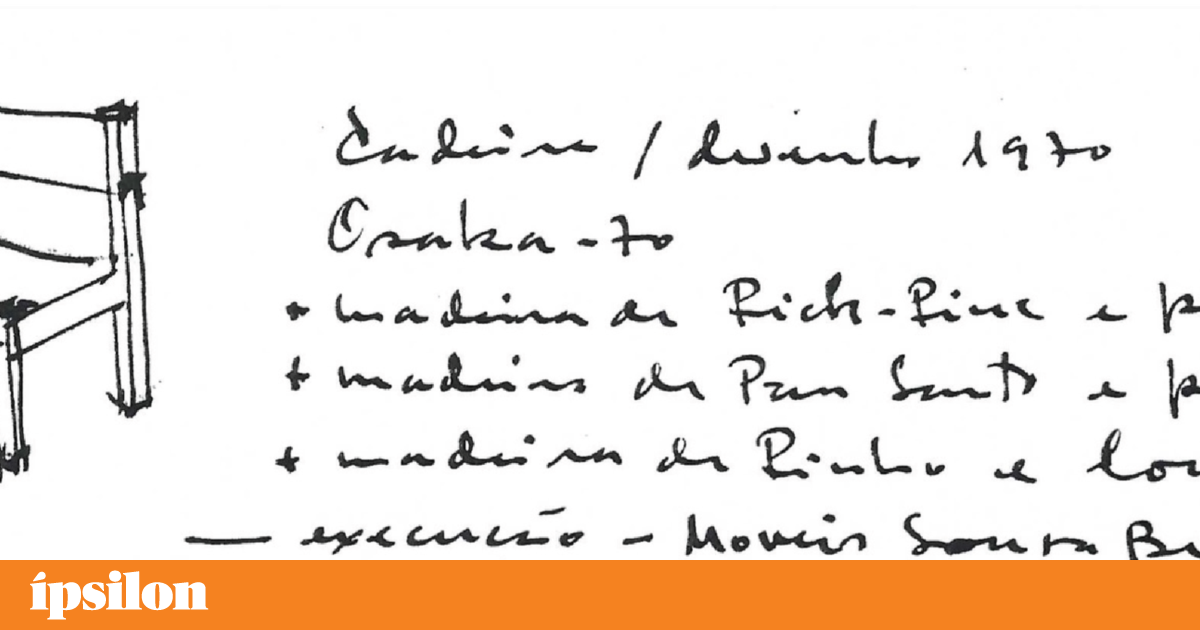 Cadeira / desenho 1970
Osaka-70
+ madeira de Rich-Pine e p
+ madeira de Pau Santo e p
+ madeira de Pinho e lon
— execução - Moveis Sousa Br
ípsilon